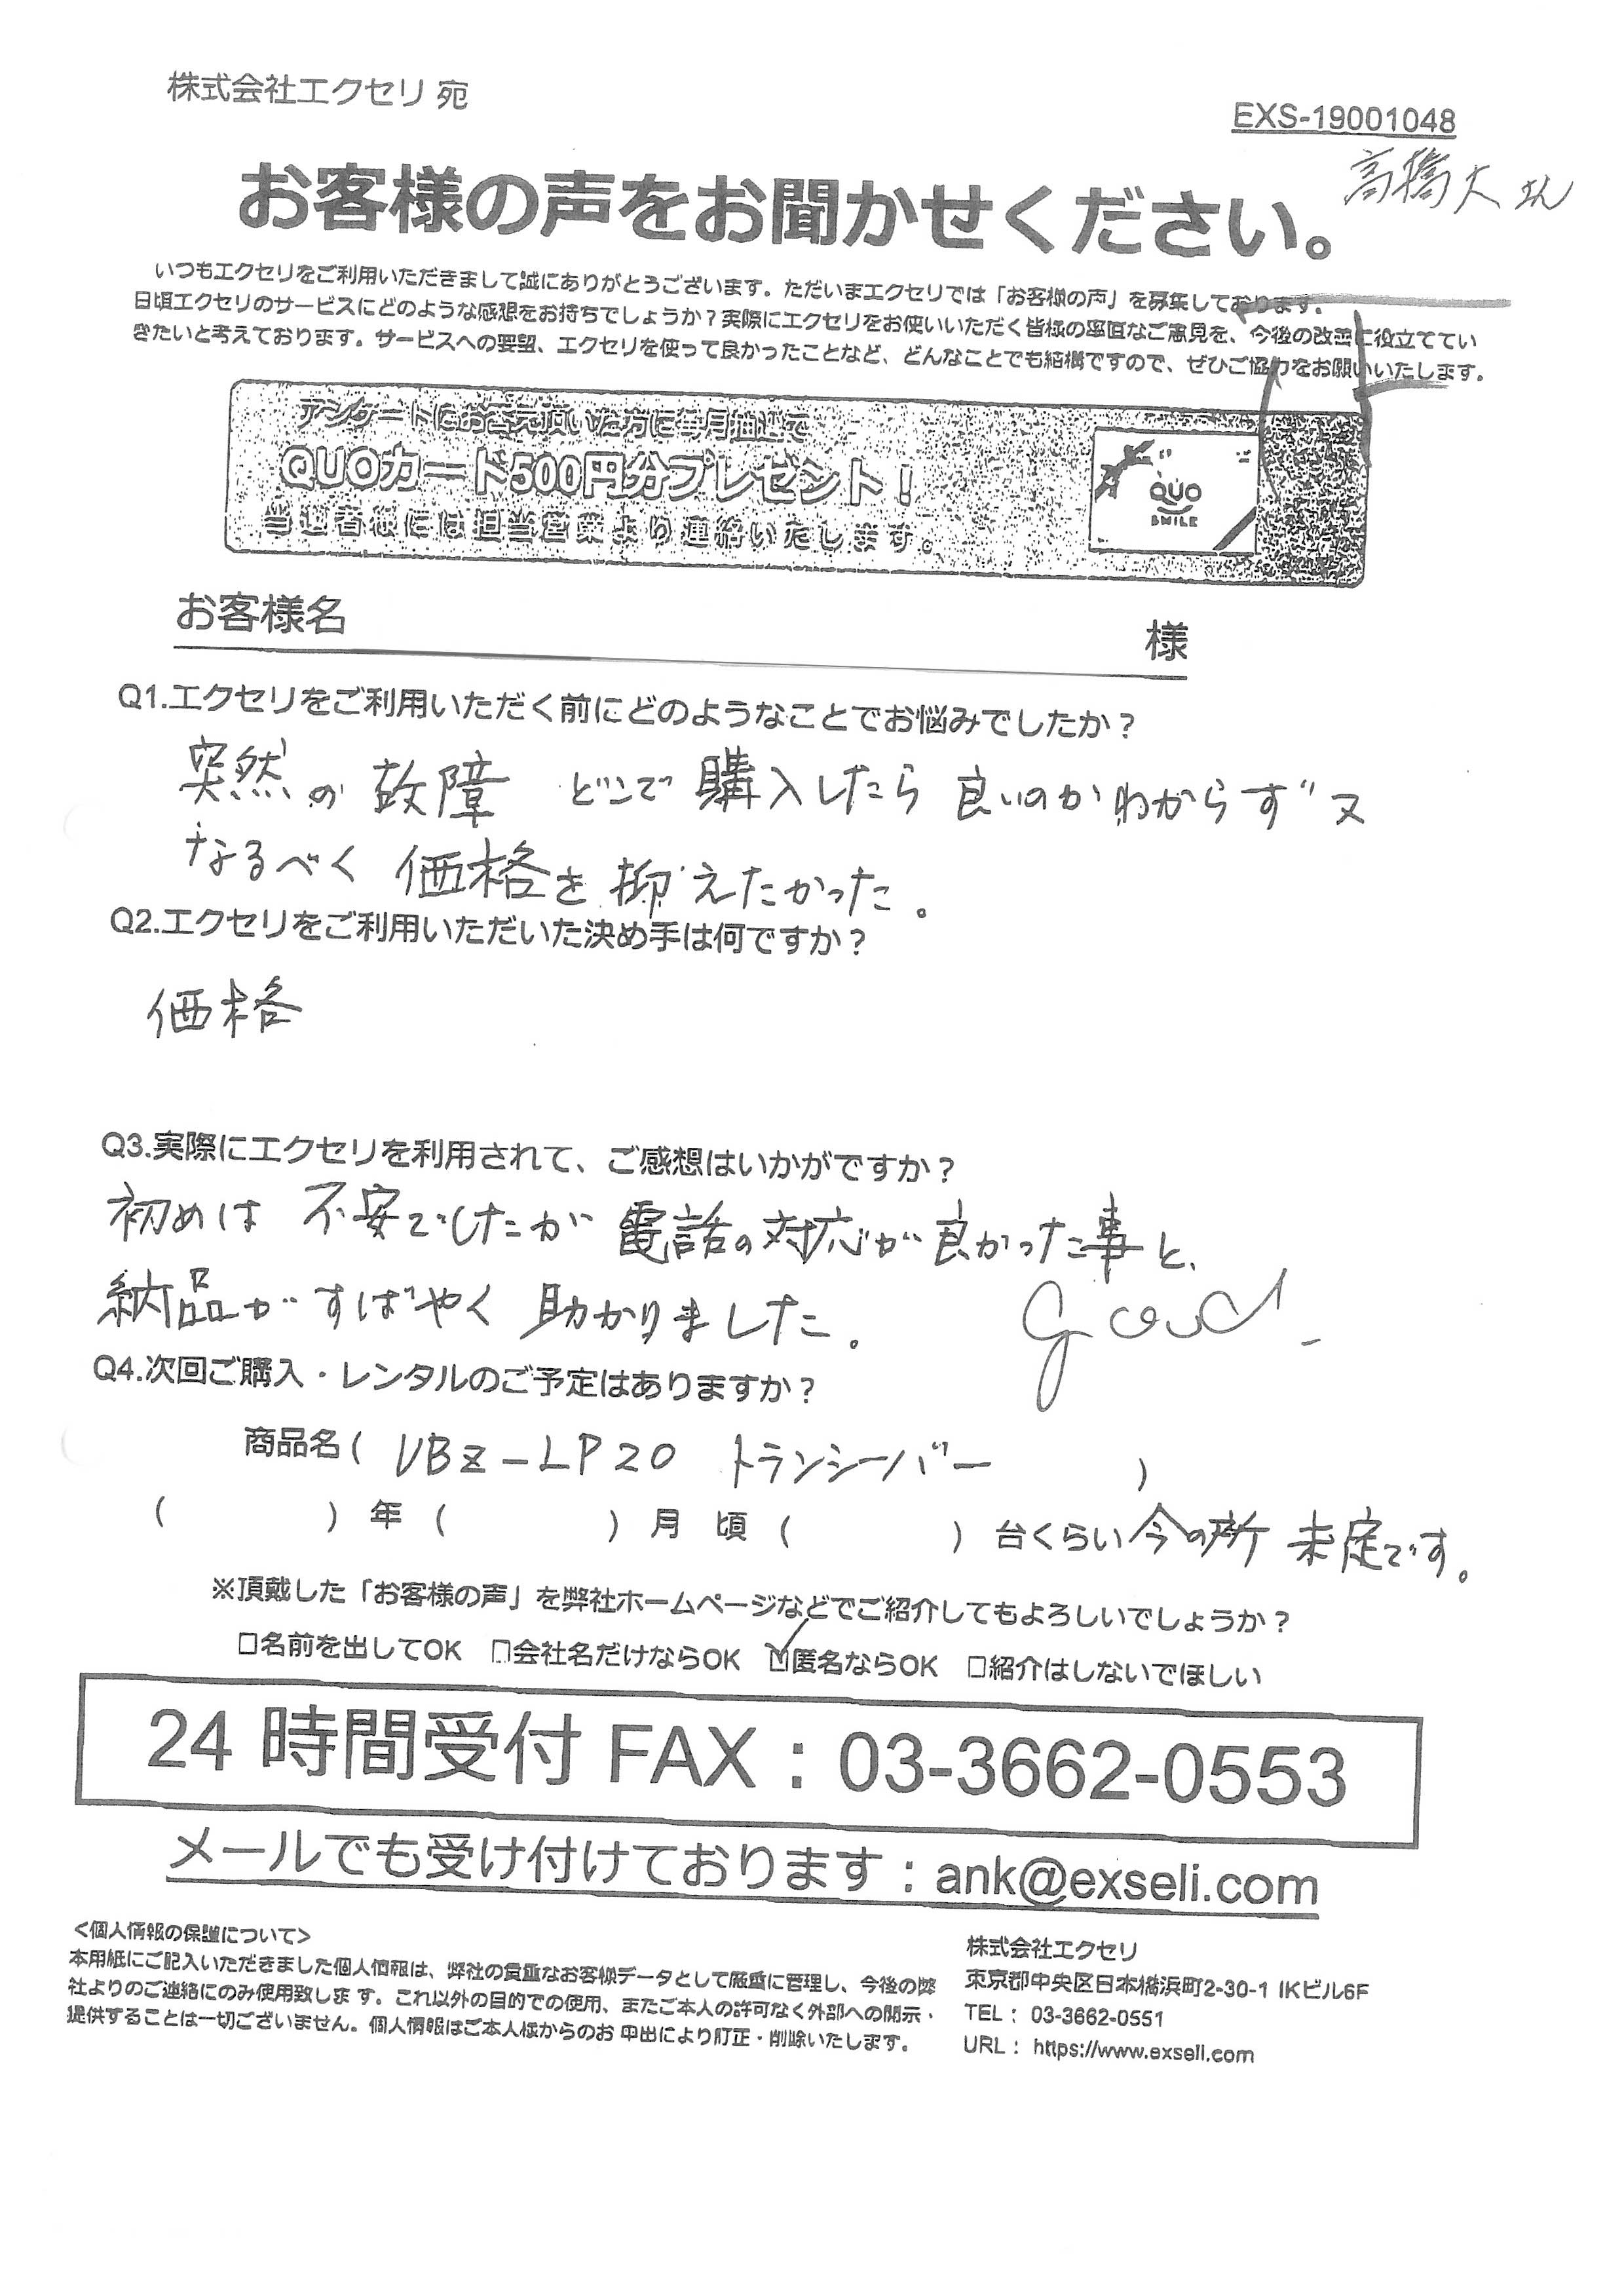 株式会社エクセリ 宛
EXS-19001048
高橋大さん
お客様の声をお聞かせください。
いつもエクセリをご利用いただきまして誠にありがとうございます。ただいまエクセリでは「お客様の声」を募集しております。
日頃エクセリのサービスにどのような感想をお持ちでしょうか？実際にエクセリをお使いいただく皆様の率直なご意見を、今後の改善に役立ててい
きたいと考えております。サービスへの要望、エクセリを使って良かったことなど、どんなことでも結構ですので、ぜひご協力をお願いいたします。
アンケートにお答え頂いた方に毎月抽選で
QUOカード500円分プレゼント！
当選者様には担当営業より連絡いたします。
QUO
SMILE
お客様名 様
Q1.エクセリをご利用いただく前にどのようなことでお悩みでしたか？
突然の 故障 どこで 購入したら 良いのかわからず 又
なるべく 価格を抑えたかった。
Q2.エクセリをご利用いただいた決め手は何ですか？
価格
Q3.実際にエクセリを利用されて、ご感想はいかがですか？
初めは 不安でしたが 電話の対応が良かった事と、
納品がすばやく 助かりました。 good
Q4.次回ご購入・レンタルのご予定はありますか？
商品名( UBZ-LP20 トランシーバー )
( ) 年 ( ) 月 頃 ( ) 台くらい 今の所 未定です。
※頂戴した「お客様の声」を弊社ホームページなどでご紹介してもよろしいでしょうか？
□名前を出してOK □会社名だけならOK ☑匿名ならOK □紹介はしないでほしい
24 時間受付 FAX：03-3662-0553
メールでも受け付けております：ank@exseli.com
<個人情報の保護について>
本用紙にご記入いただきました個人情報は、弊社の貴重なお客様データとして厳重に管理し、今後の弊
社よりのご連絡にのみ使用致します。これ以外の目的での使用、またご本人の許可なく外部への開示・
提供することは一切ございません。個人情報はご本人様からのお申出により訂正・削除いたします。
株式会社エクセリ
東京都中央区日本橋浜町2-30-1 IKビル6F
TEL： 03-3662-0551
URL： https://www.exseli.com